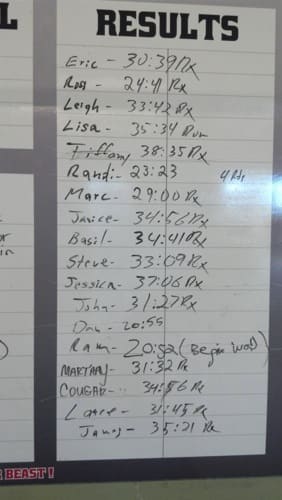 RESULTS
Eric - 30:39 Rx
Ross - 24:41 Rx
Leigh - 33:42 Rx
Lisa - 35:34 Run
Tiffany 38:35 Rx
Randi - 23:23 4 Rds
Marc - 29:00 Rx
Janice - 34:56 Rx
Basil - 34:41 Rx
Steve - 33:09 Rx
Jessica - 37:06 Rx
John - 31:27 Rx
Dan - 20:55
Ram - 20:52 (Begin WOD)
MARTHAY - 31:32 Rx
COUGAR - 34:56 Rx
Lance - 31:45 Rx
James - 35:21 Rx
BEAST!